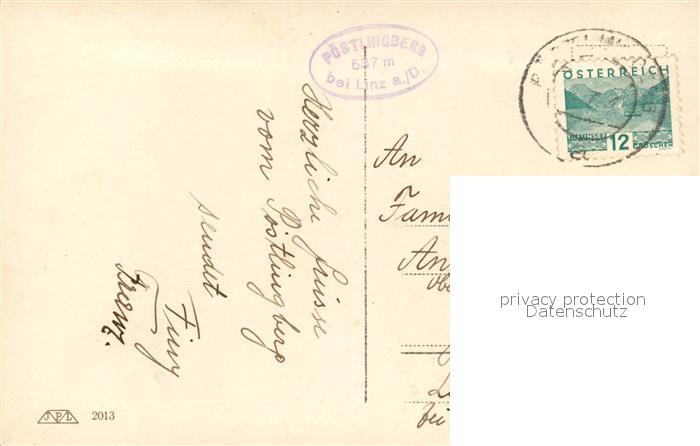 PÖSTLINGBERG
537 m
bei Linz a./D.
ÖSTERREICH
12
GROSCHEN
Herzliche Grüsse
vom Pöstlingberg
sendet
Finy
An
Fam
An
obe
bei
privacy protection
Datenschutz
JPL
2013